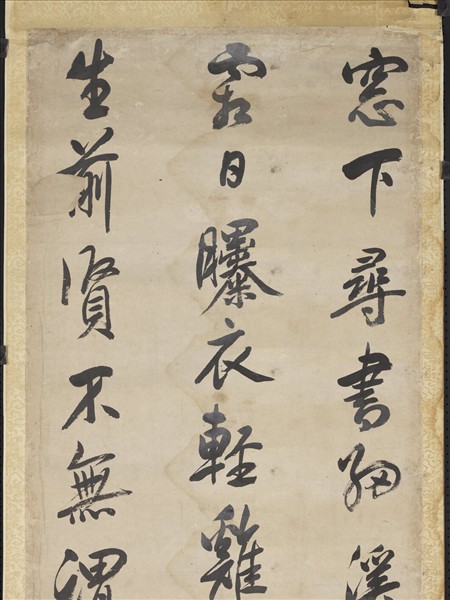 窓下尋書細溪
霜日曝衣輕雞
生前賢不無謂